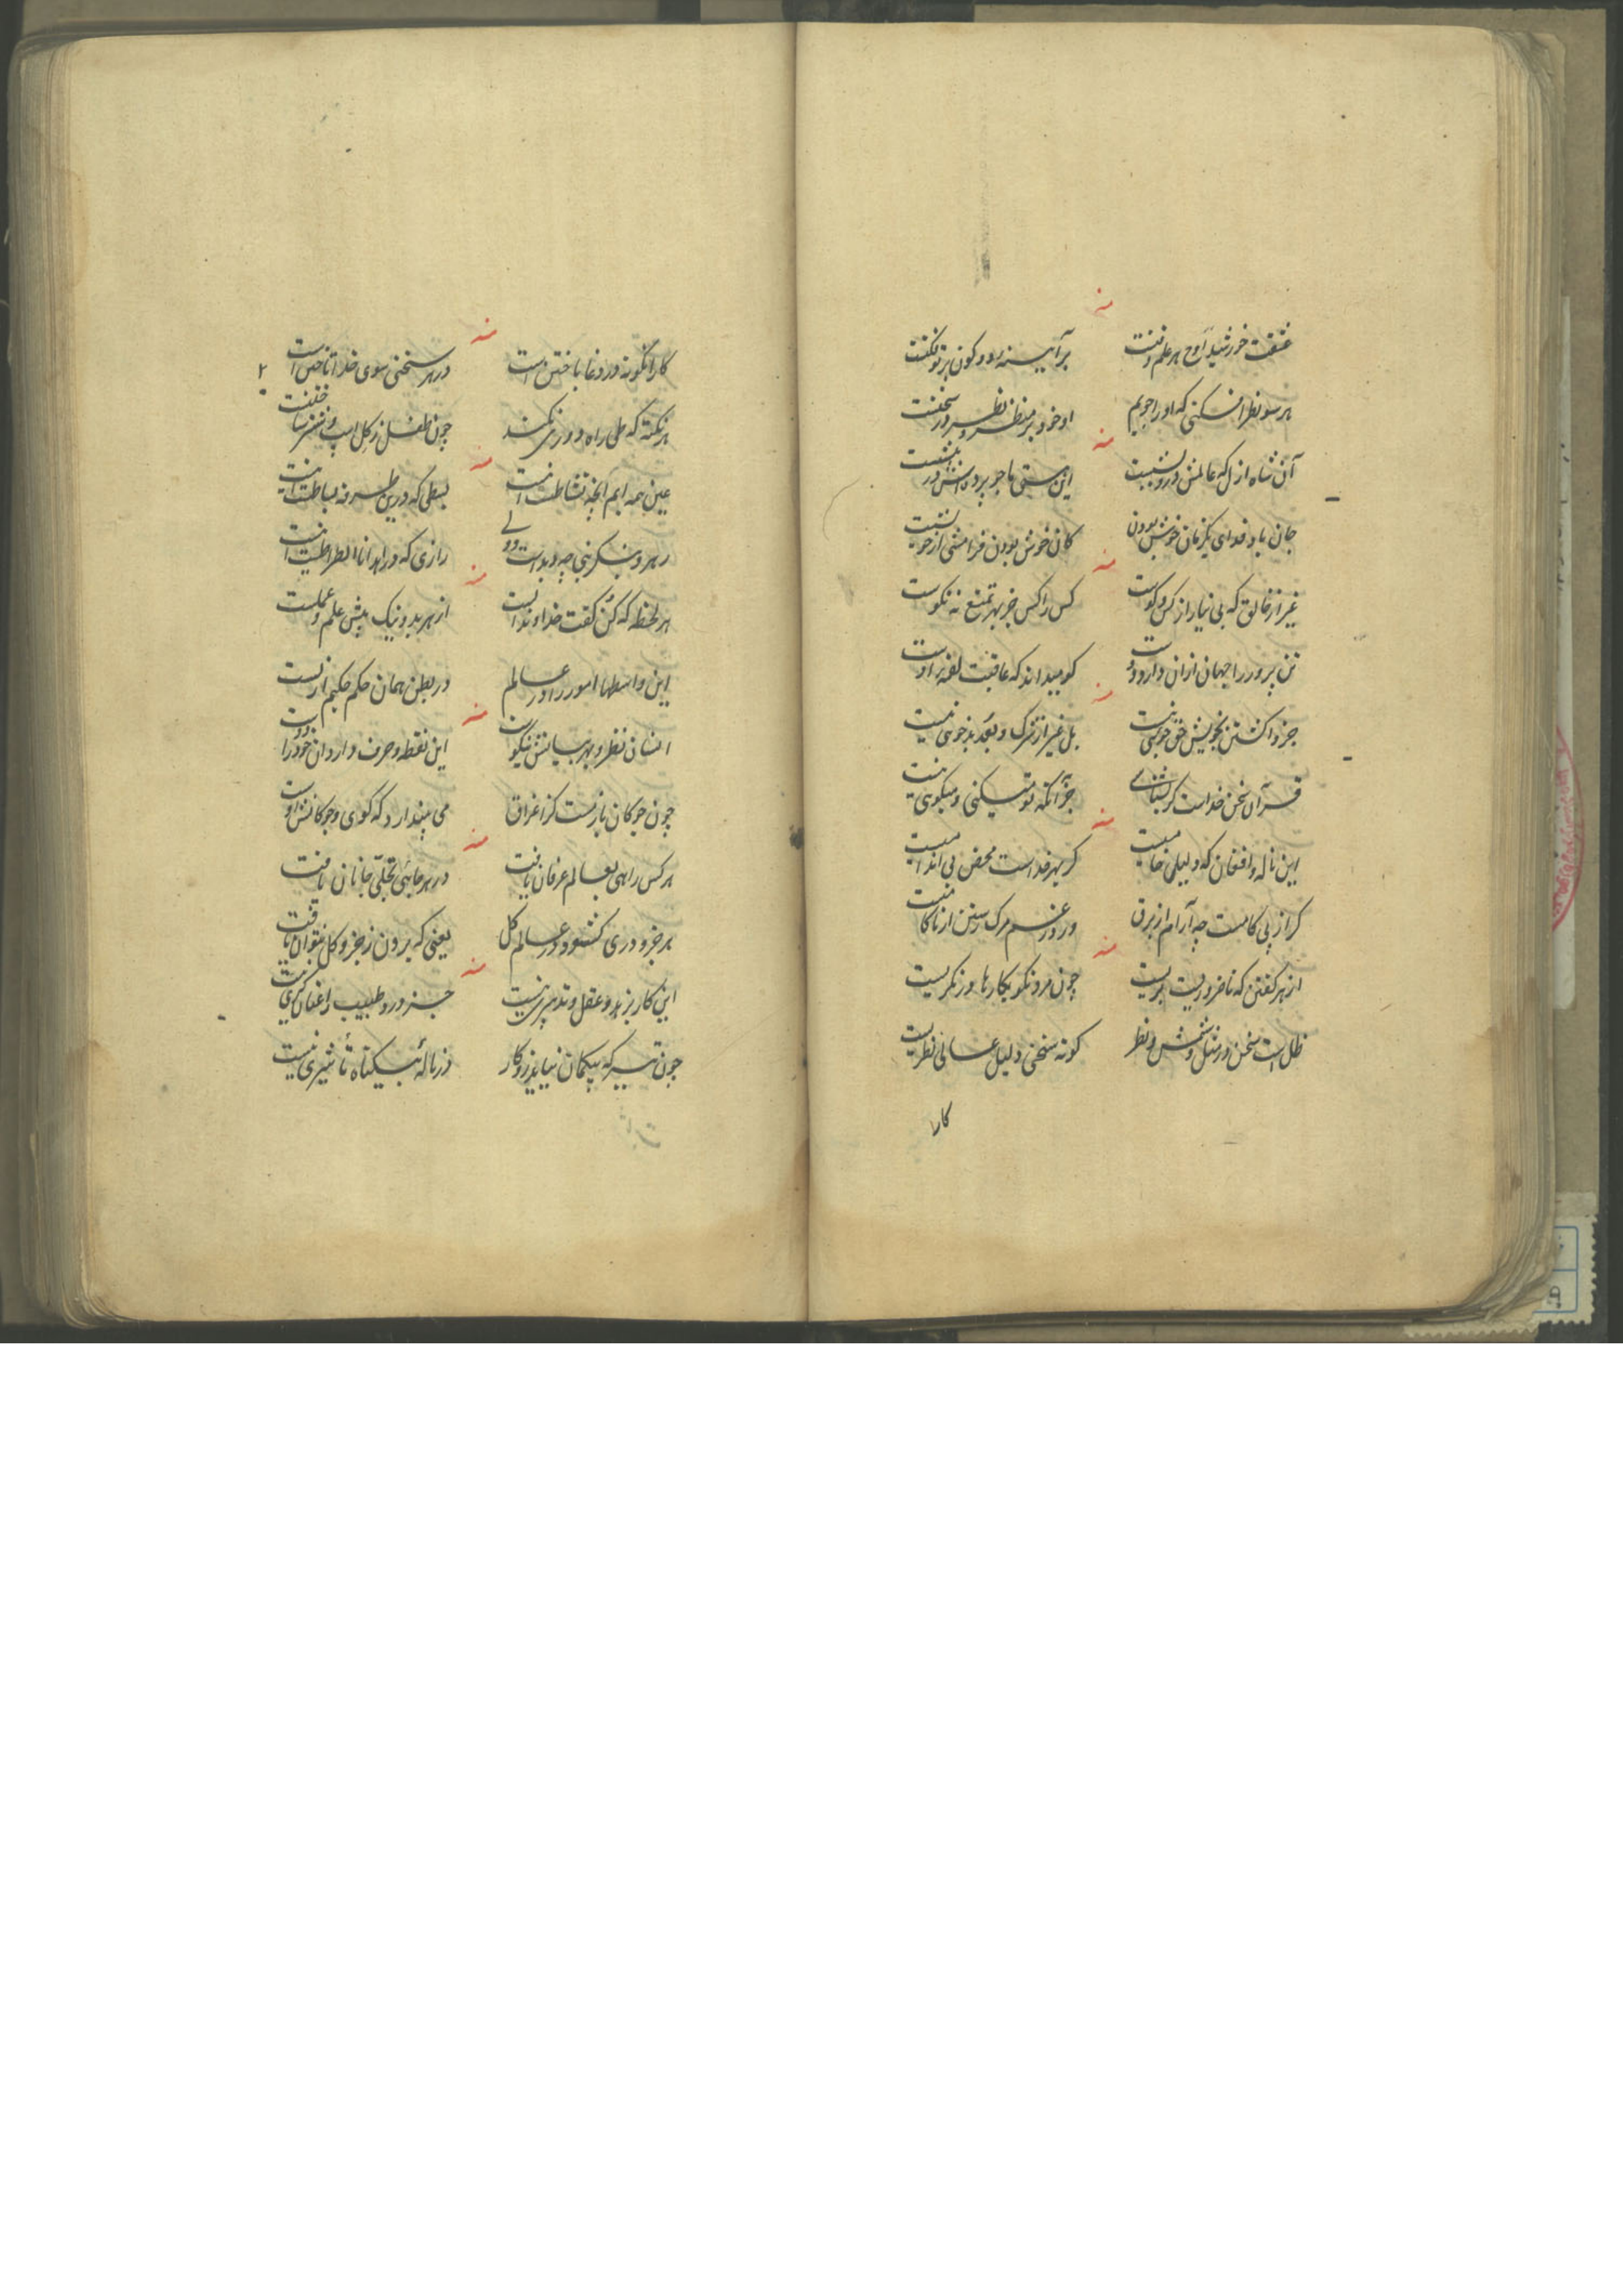 منه
عشقت خورشید اوج هر علم و فنست بر آیینه رو دو کون پرتو فکنست
هر سو نظر افکنی که او را جویم او خود بر منظر و نظر در سخنست
منه
آن شاه ازل که عالمش درویشیست این هستی ما چو پرده اش در پیشست
جان باد فدای یکزمان خوش بودن کان خوش بودن فرامشی از خویشست
منه
غیر از خالق که بی نیاز از کس و کوست کس را کس جز بهر تمتع نه نکوست
تن پرور را جهان از آن دارد دوست کو میداند که عاقبت لقمه اوست
منه
جز واگشتن بخویش حق جویی نیست بل غیر از ترک و بعد بدخویی نیست
قرآن سخن خداست گر بشناسی جز آنکه تو میکنی و میگویی نیست
منه
این ناله و افغان که دلیل خامیست گر بهر خداست محض بی اندامیست
گر از پی کامست چه آرام از برق ور در غم مرگ رستن از ناکامیست
منه
از هر گفتن که ناضروریست بریست چون مرد نکو بکارها در نگریست
ظل است سخن در مثل و شمس نظر کوته سخنی دلیل عالی نظریست
کار
منه
کار اینگونه در دغا باختن است در هر سخنی سوی خدا تاختن است
هر نکته که طی راه دوری نکند چون طفل ز گل اسپ و نفر ساختنست
منه
عین همه ایم آنچه نشاطست اینست بسطی که درین طرفه بساطست اینست
رهرو بنگر بنی چه دیداست ولی رازی که در اهدنا الصراطست اینست
منه
هر لحظه که کن گفت خداوند از هر بد و نیک پیش علم و عملست
این واسطها امور را در عالم در بطن همان حکم حکیم ازلست
منه
انسان نظر و بهر بیانش نیکوست این نقطه و حرف دار دان خود را دوست
چون چوگان باز مست کز اغراق می پندارد که گوی و چوگانش اوست
منه
هر کس راهی بعالم عرفان یافت در هر جایی تجلی جانان یافت
هر جزو دری گشود در عالم کل یعنی که برون ز جزو و کل نتوان یافت
منه
این کار بزهد و عقل و تدبیری نیست جز درد طبیب را عنان گیری نیست
چون تیر که بیکمان نیاید در کار در ناله بیگناه تأثیری نیست